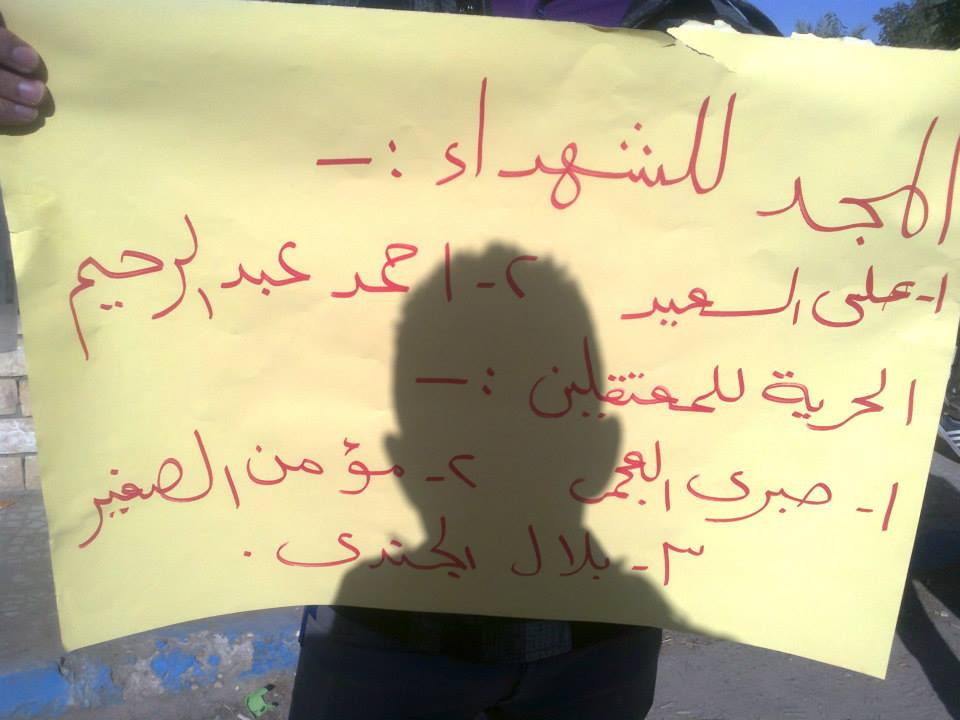 المجد للشهداء :-
١- على السعيد ٢- احمد عبد الرحيم
الحرية للمعتقلين :-
١- صبرى العجمى ٢- مؤمن الصغير
٣- بلال الجندى .